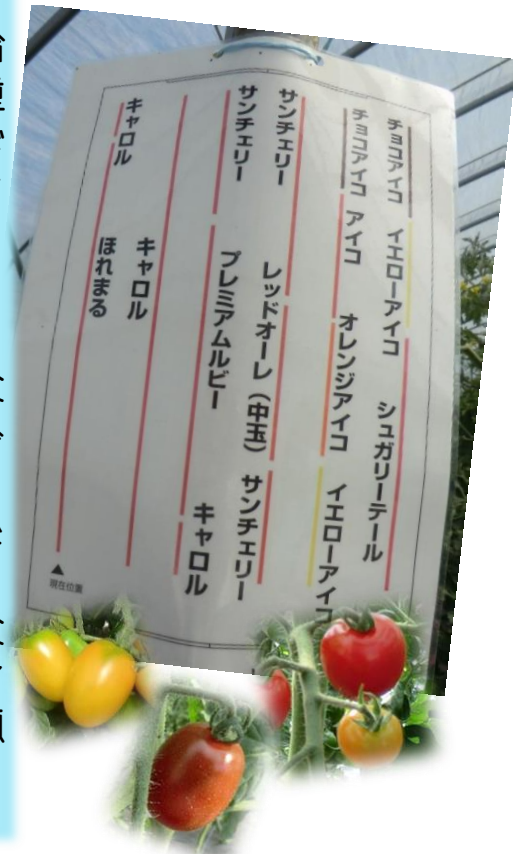 チョコアイコ イエローアイコ シュガリーテール
チョコアイコ アイコ オレンジアイコ イエローアイコ
サンチェリー レッドオーレ（中玉） サンチェリー
サンチェリー プレミアムルビー キャロル
キャロル
キャロル ほれまる
▲
現在位置